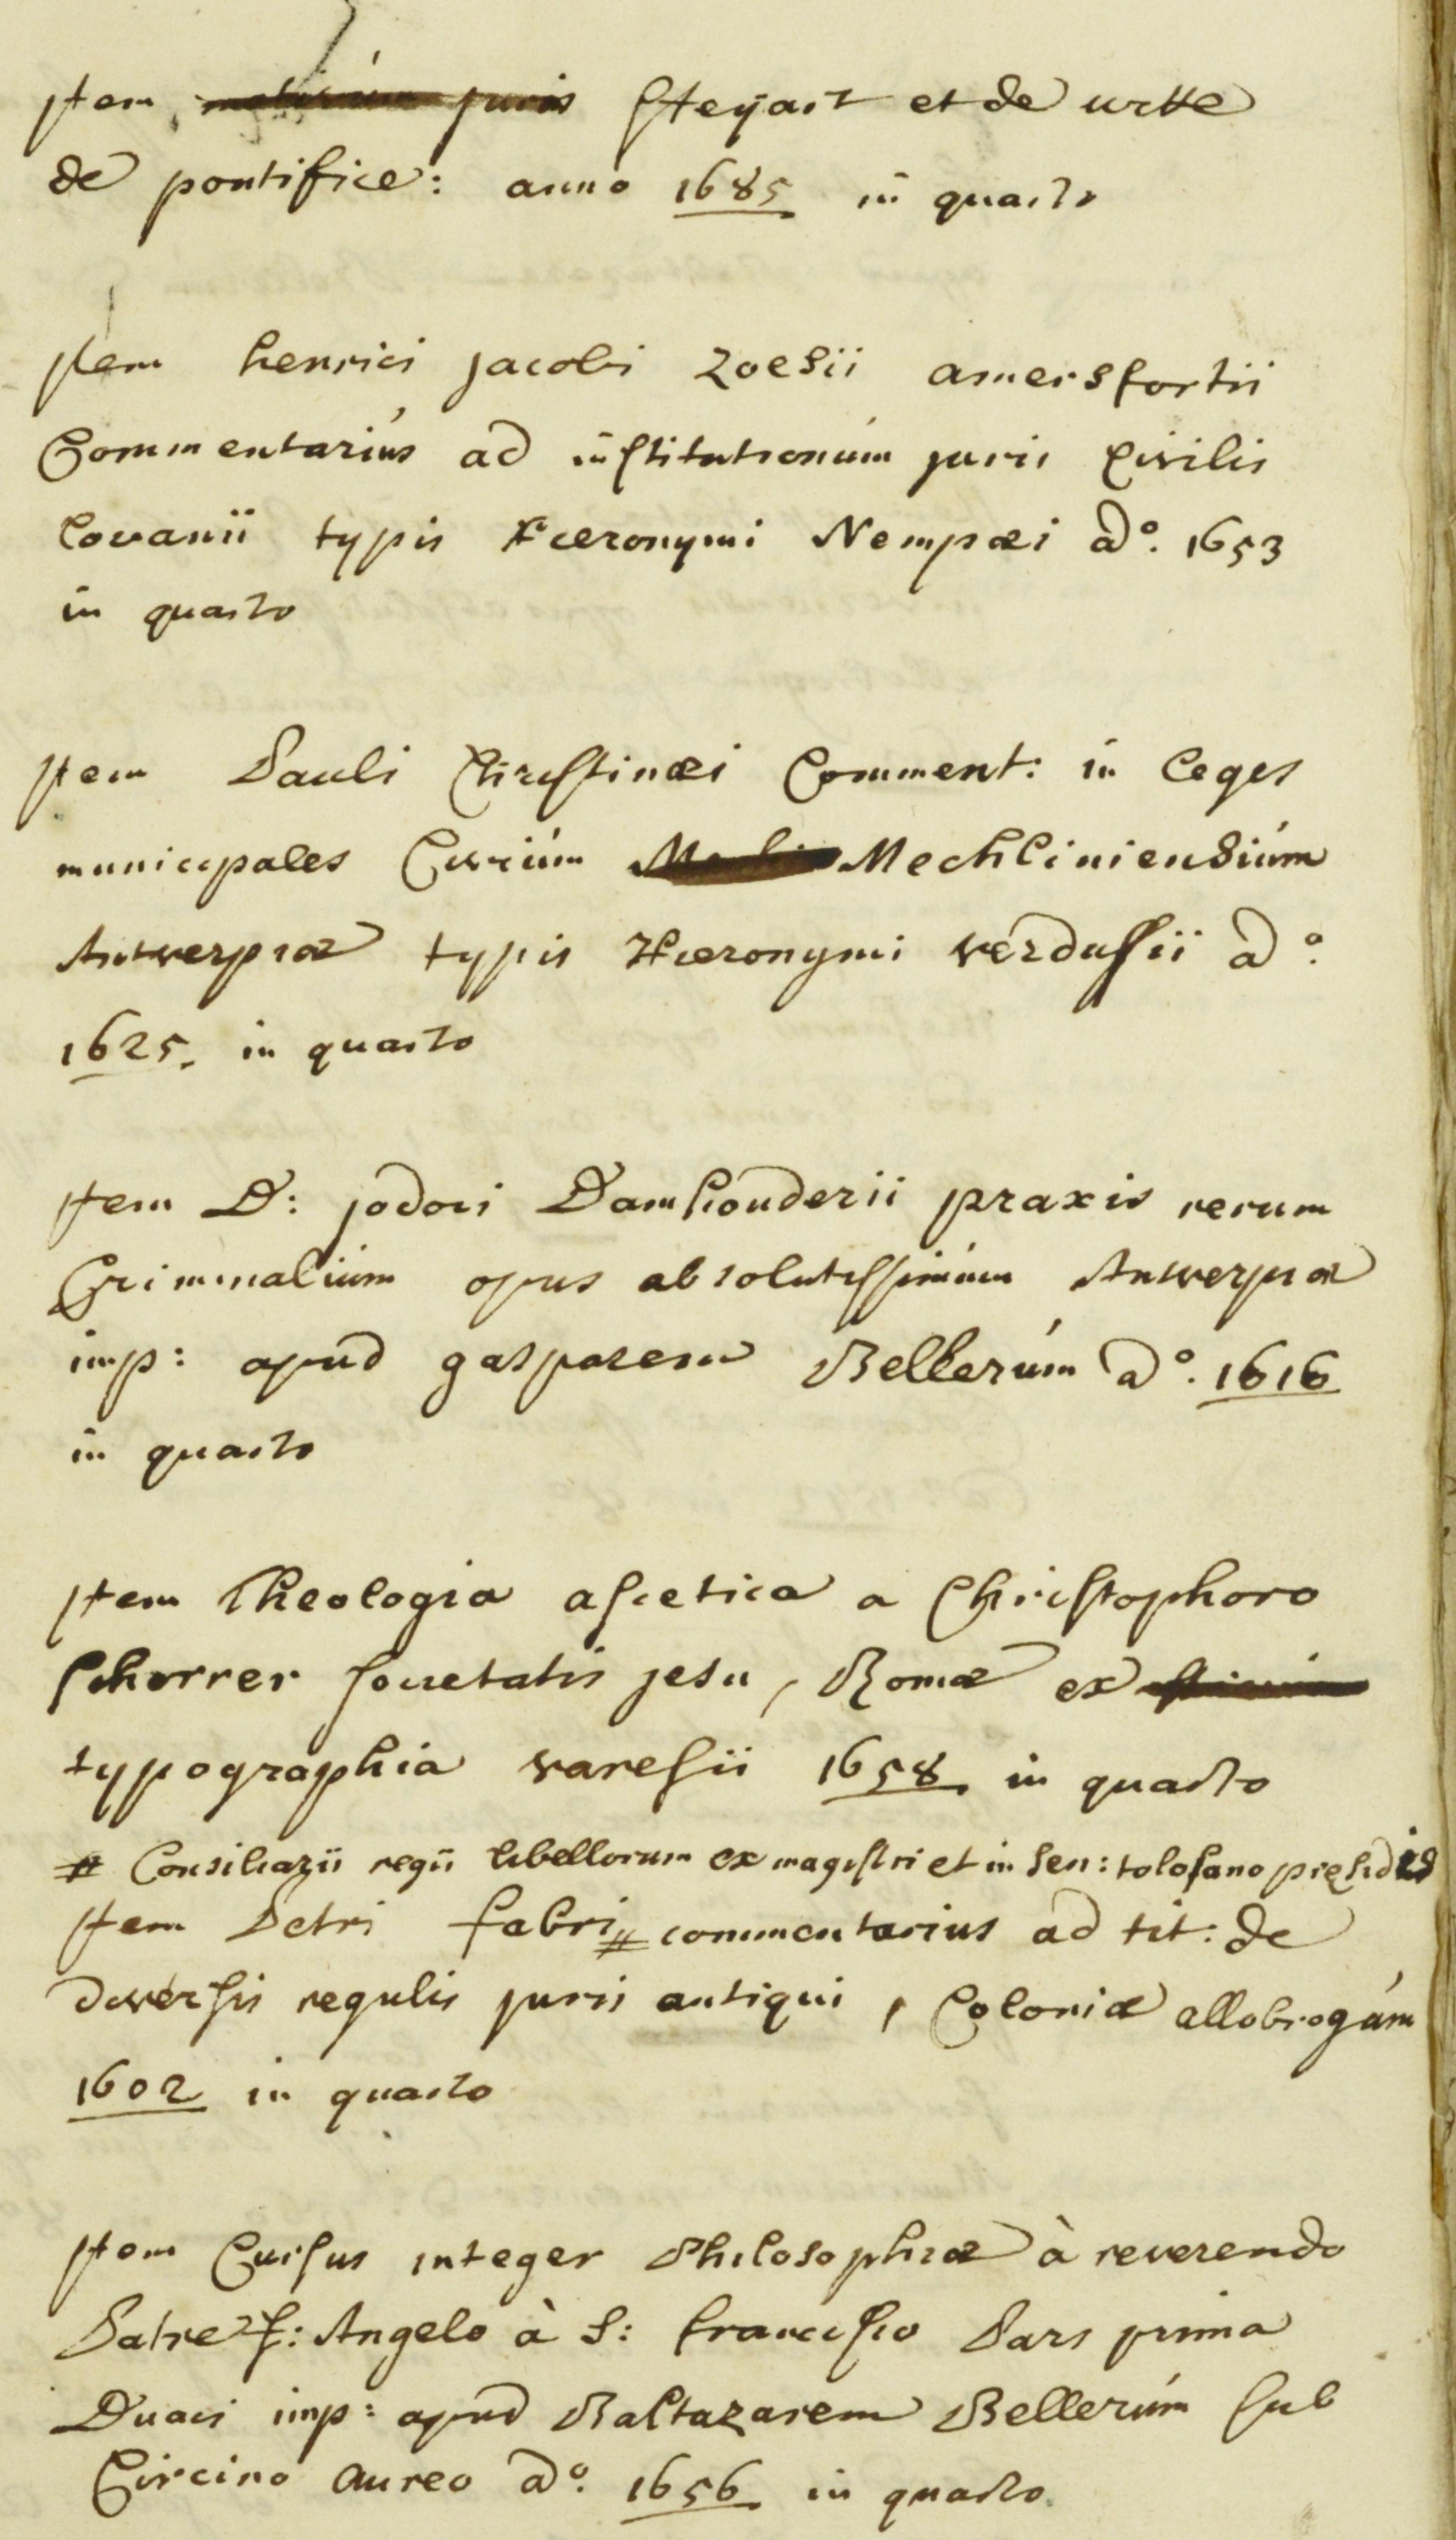 Item juris Steÿart et de witte
de pontifice: anno 1685 in quarto
Item henrici jacobi Zoesii amersfortii
Commentariús ad institutionúm juris Civilis
Lovanii typis Hieronymi Nempæi ad°. 1653
in quarto
Item Pauli Christinæi Comment: in Leges
municipales Civiúm Mechliniensiúm
Antverpiæ typis Hieronymi verdussii ad°.
1625. in quarto
Item D: jodoci Damhouderii praxis rerum
Criminaliúm opus absolutissimúm Antverpiæ
imp: apud gasparem Bellerúm ad°. 1616
in quarto
Item Theologia ascetica a Christophoro
schorrer societatis jesu, Romæ ex
typographia varesii 1658 in quarto
# Consiliarii regii libellorum ex magistri et in sen: tolosano præsidis
Item Petri fabri # commentarius ad tit: de
diversis regulis juris antiqui, Coloniæ allobrogúm
1602 in quarto
Item Cursus integer Philosophiæ à reverendo
Patre f: Angelo à S: francisco Pars prima
Duaci imp: apud Baltazarem Bellerúm sub
Circino aureo ad°. 1656 in quarto